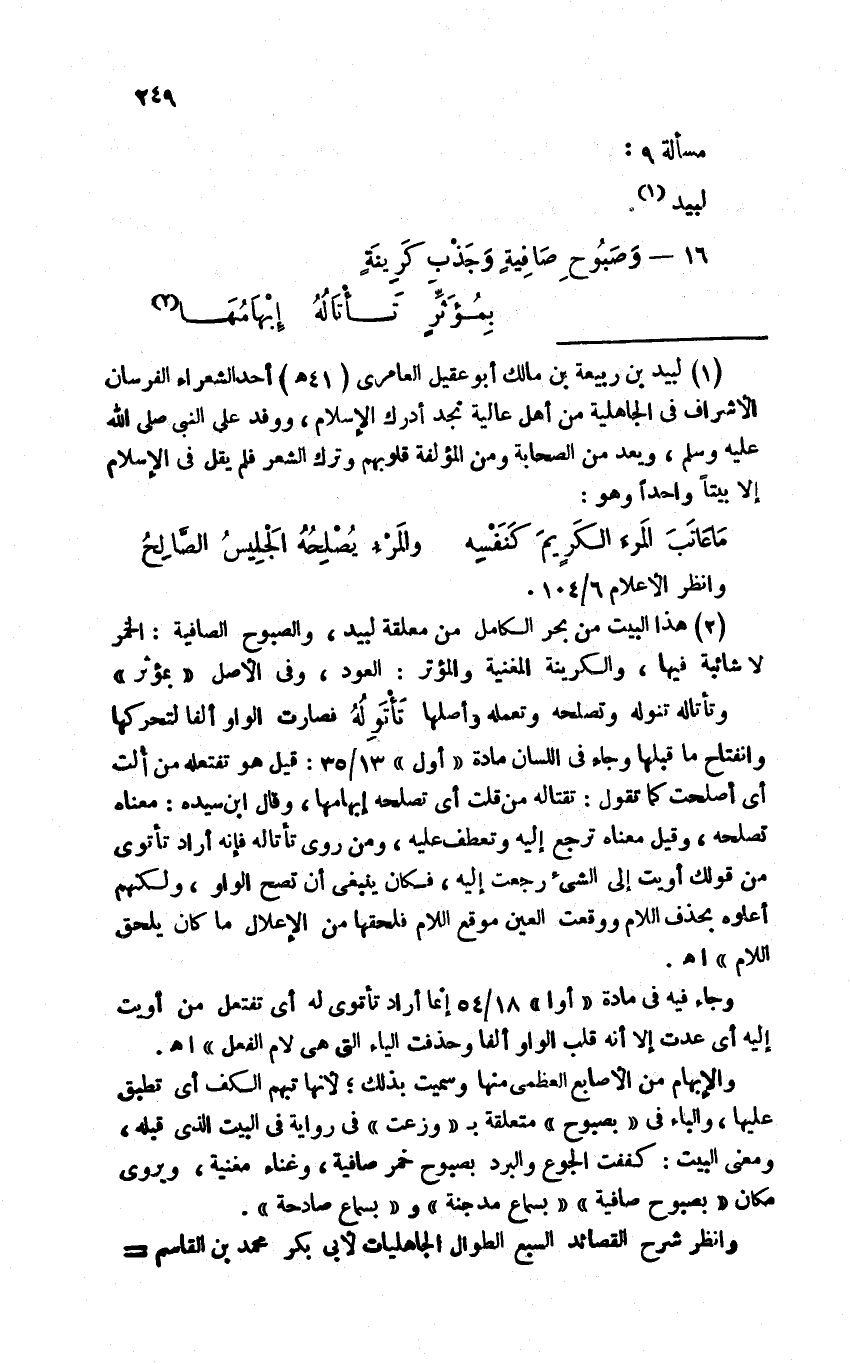 ٢٤٩
مسألة ٩ :
لبيد (١).
١٦ — وَصَبُوحِ صَافِيةٍ وَجَذْبِ كَرِينَةٍ
بِمُـؤَثَّرٍ تَـــأْتَالُهُ إِبْهَامُهَـــا(٢)
(١) لبيد بن ربيعة بن مالك أبو عقيل العامرى ( ٤١ه ) أحد الشعراء الفرسان
الأشراف فى الجاهلية من أهل عالية نجد أدرك الإسلام ، ووفد على النبى صلى الله
عليه وسلم ، ويعد من الصحابة ومن المؤلفة قلوبهم وترك الشعر فلم يقل فى الإسلام
إلا بيتاً واحداً وهو :
مَا عَاتَبَ المَرءَ الـكَرِيمَ كَنَفْسِه والمَرْء يُصْلِحُهُ الجَلِيسُ الصَّالِحُ
وانظر الأعلام ١٠٤/٦ .
(٢) هذا البيت من بحر الـكامل من معلقة لبيد ، والصبوح الصافية : الخمر
لا شائبة فيها ، والـكرينة المغنية والمؤتر : العود ، وفى الأصل « بمؤثر »
وتأتاله تنوله وتصلحه وتعمله وأصلها تَأْتَوِلُهُ فصارت الواو ألفا لتحركها
وانفتاح ما قبلها وجاء فى اللسان مادة « أول » ٣٥/١٣ : قيل هو تفتعله من ألت
أى أصلحت كما تقول : تقتاله من قلت أى تصلحه إبهامها ، وقال ابن سيده : معناه
تصلحه ، وقيل معناه ترجع إليه وتعطف عليه ، ومن روى تأتاله فإنه أراد تأتوى
من قولك أويت إلى الشىء رجعت إليه ، فـكان ينبغى أن تصح الواو ، ولـكنهم
أعلوه بحذف اللام ووقعت العين موقع اللام فلحقها من الإعلال ما كان يلحق
اللام » ا ه .
وجاء فيه فى مادة « أوا » ٥٤/١٨ إنما أراد تأتوى له أى تفتعل من أويت
إليه أى عدت إلا أنه قلب الواو ألفا وحذفت الياء التى هى لام الفعل » ا ه .
والإبهام من الأصابع العظمى منها وسميت بذلك ؛ لأنها تبهم الـكف أى تطبق
عليها ، والباء فى « بصبوح » متعلقة بـ « وزعت » فى رواية فى البيت الذى قبله ،
ومعنى البيت : كففت الجوع والبرد بصبوح خمر صافية ، وغناء مغنية ، ويروى
مكان « بصبوح صافية » « بسماع مدجنة » و « بسماع صادحة » .
وانظر شرح القصائد السبع الطوال الجاهليات لأبى بكر محمد بن القاسم =